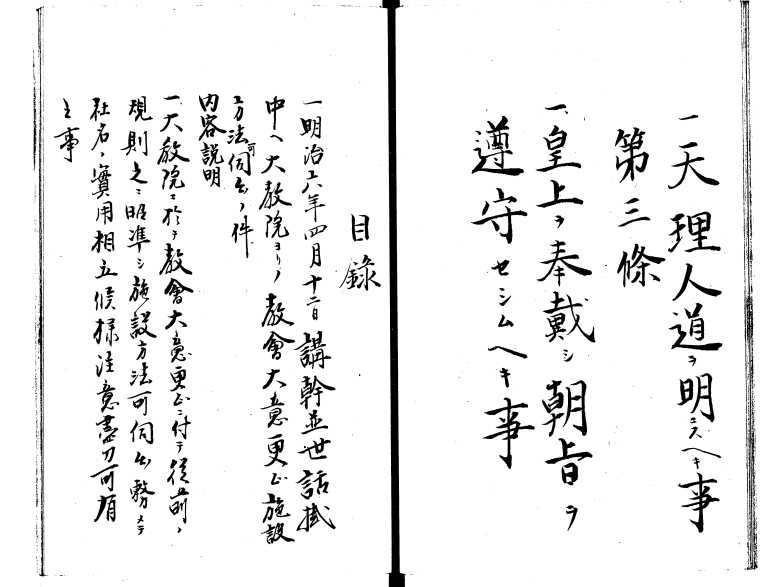 一天理人道ヲ明ニスヘキ事
第三條
一皇上ヲ奉戴シ朝旨ヲ
遵守セシムヘキ事
目錄
一明治六年四月十二日講幹並世話掛
中ヘ大教院ヨリノ教會大意更正施設
方法可伺出ノ件
内容説明
一大教院ニ於テ教會大意更正ニ付テ從前ノ
規則之ニ照準シ施設方法可伺出務メテ
社名ノ實用相立候様注意盡力可有
之事